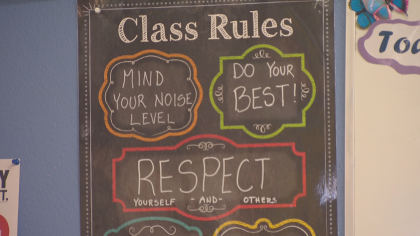 Class Rules
MIND
YOUR NOISE
LEVEL
DO YOUR
BEST!
RESPECT
YOURSELF -AND- OTHERS